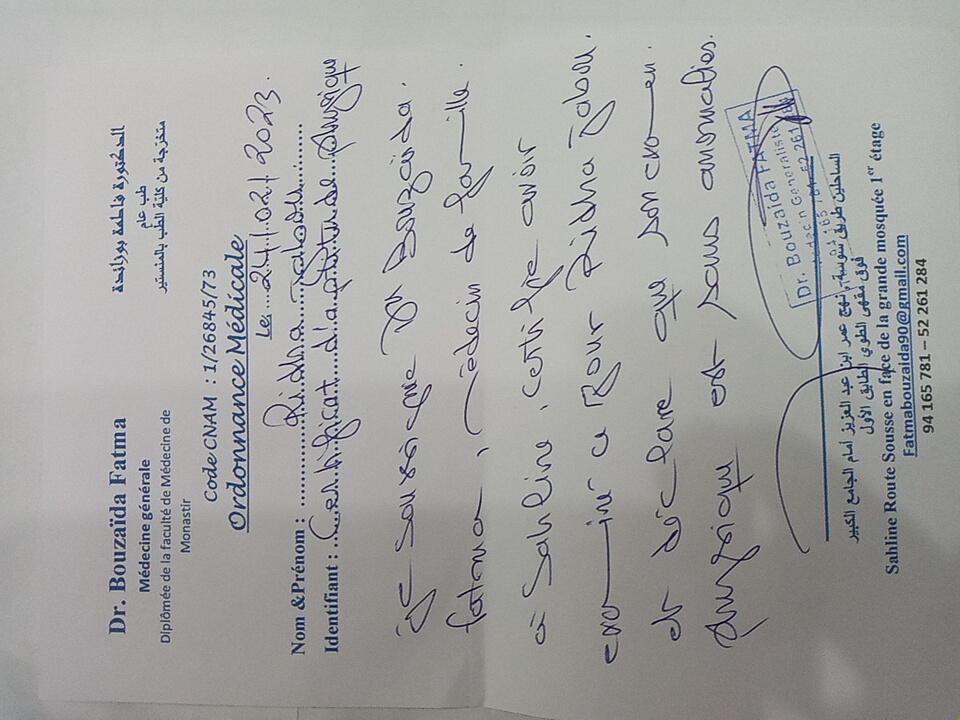 Dr. Bouzaïda Fatma
Médecine générale
Diplômée de la faculté de Médecine de
Monastir
الدكتورة فاطمة بوزائدة
طب عام
متخرجة من كلية الطب بالمنستير
Code CNAM : 1/26845/73
Ordonnance Médicale
Le: 24/02/2023
Nom &Prénom : Ridha Jabou
Identifiant : Certificat d'aptitude physique
Je soussignée Dr Bouzaida
fatma, médecin de famille
à Sahline, certifie avoir
examiné ce jour Ridha Jabou.
et déclare que son examen
physique est sans anomalies.
Dr. Bouzaida FATMA
Médecin Generaliste
الساحلين طريق سوسة، نهج عمر ابن عبد العزيز أمام الجامع الكبير
فوق مقهى الطوي الطابق الأول
Sahline Route Sousse en face de la grande mosquée 1er étage
Fatmabouzaida90@gmail.com
94 165 781 – 52 261 284